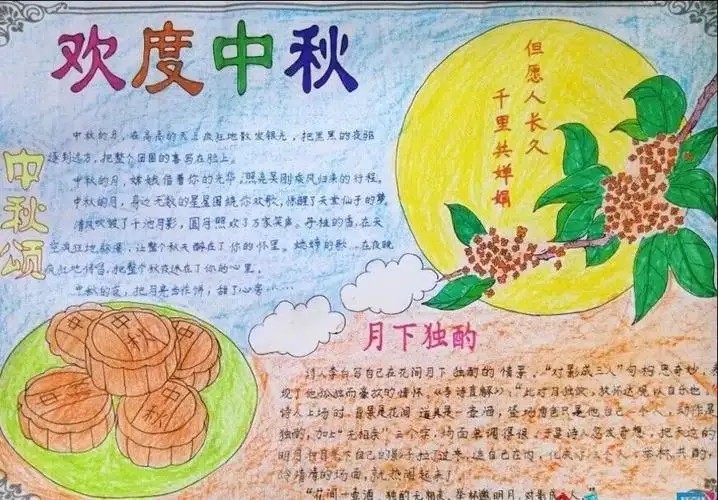 欢度中秋
但愿人长久
千里共婵娟
中秋颂
中秋的月，在高高的天上疯狂地散发银光，把黑黑的夜驱
逐到远方，把整个团圆的喜写在脸上。
中秋的月，嫦娥借着你的光华，照亮吴刚疾风归来的行程。
中秋的月，身边无数的星星围绕你欢歌，惊醒了天堂仙子的梦，
清风吹皱了千池月影，圆月照欢了万家笑声。桂的香，在天
空疯狂地弥漫，让整个秋天醉在了你的怀里。蟋蟀的歌，在夜晚
疯狂地传唱，把整个秋夜迷在了你的心里。
中秋的夜，把月亮当作饼，甜了心房……
中秋
中秋
中秋
月下独酌
诗人李白写自己在花间月下独酌的情景，“对影成三人”句构思奇妙，表
现了他孤独而豪放的情怀，《李诗直解》：“此对月独饮，放怀达观以自乐也。
诗人上场时，背景是花间，道具是一壶酒，登场角色只是他自己一个人，动作是
独酌，加上“无相亲”三个字，场面单调得很。于是诗人忽发奇想，把天边的
明月和月光下自己的影子拉了过来，连自己在内，化成了三个人，举杯共酌，
冷清清的场面，就热闹起来了
“花间一壶酒，独酌无相亲，举杯邀明月，对影成三人